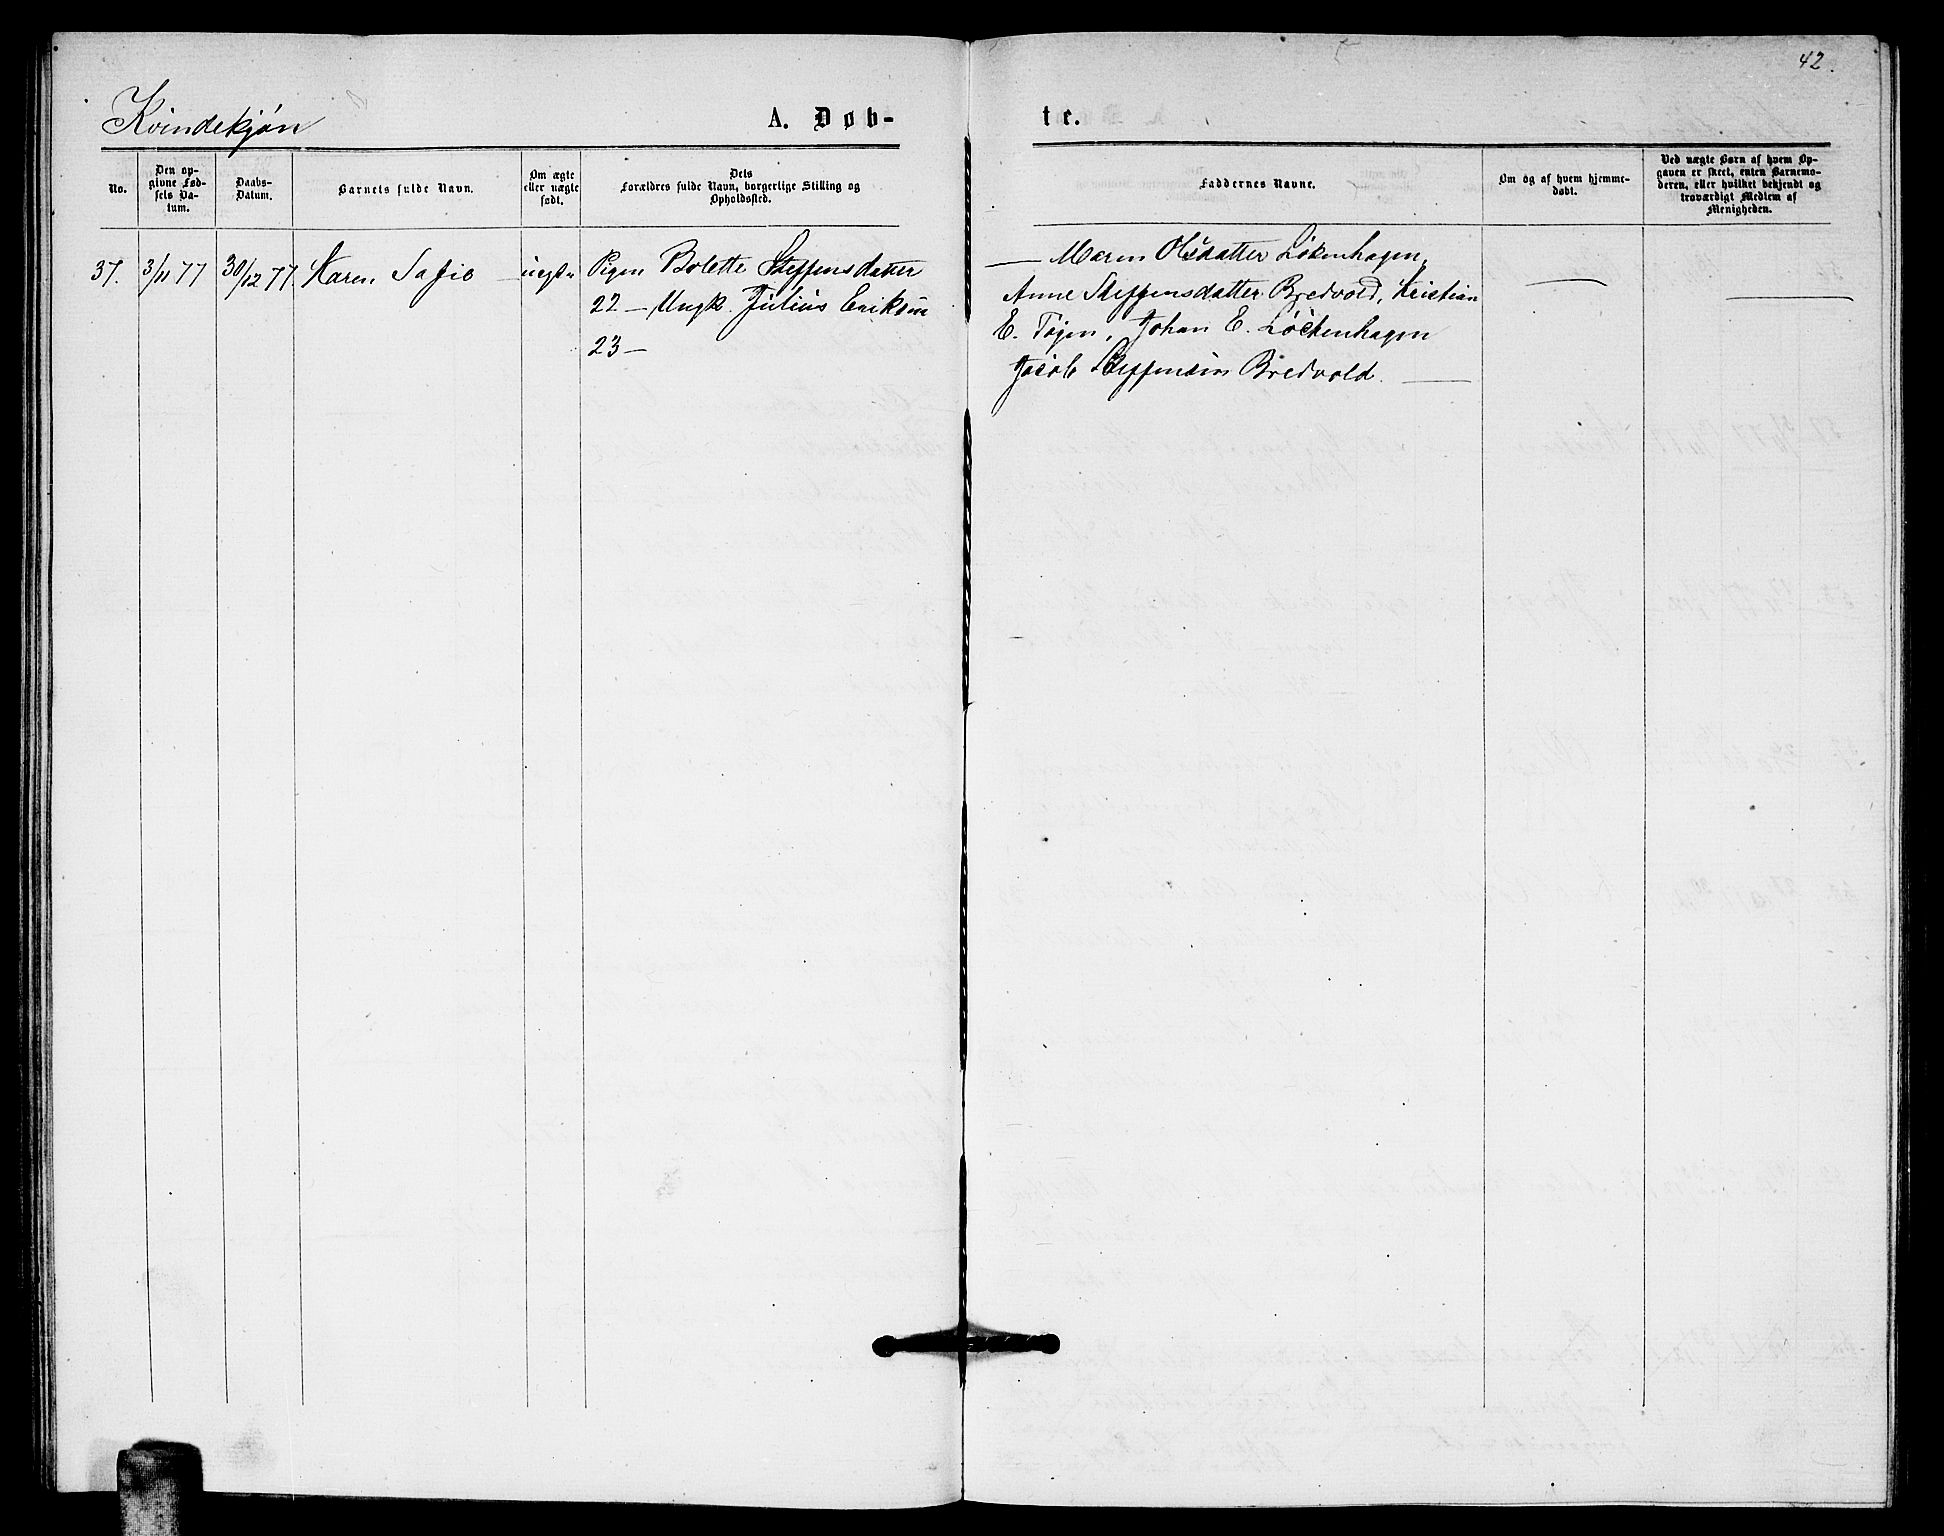 42.
Kvindekjøn
A. Døb-
te.
No.
Den op-
givne Fød-
sels Da-
tum.
Daabs-
Datum.
Barnets fulde Navn.
Om ægte
eller uægte
født.
Dets
Forældres fulde Navn, borgerlige Stilling og
Opholdssted.
Faddernes Navne.
Om og af hvem hjemme-
døbt.
Ved uægte Børn af hvem Op-
gaven er skeet, enten Barnemo-
deren, eller hvilket bekjendt og
troværdigt Medlem af
Menigheden.
37. 3/11 77 30/12 77. Karen Sofie — uegte Pigen Bolette Steffensdatter
22 — Ungk. Julius Eriksen
23 —
— Maren Olsdatter Løkenhagen,
Anne Steffensdatter Bredvold, Kristian
E. Tøjen, Johan E. Løckenhagen
Jacob Steffensen Bredvold. —